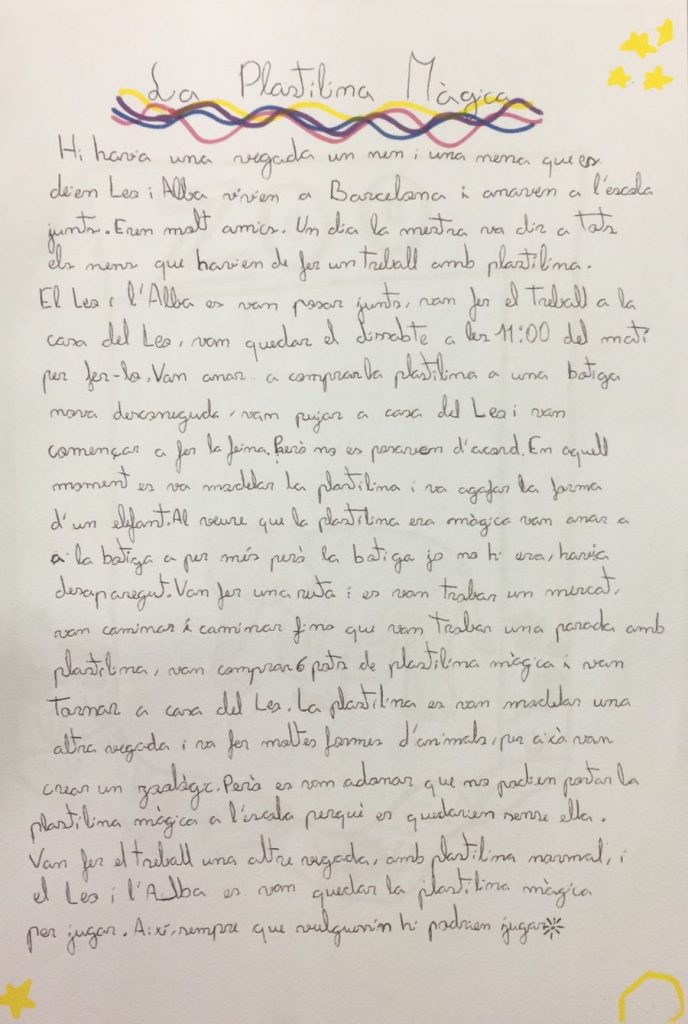 La Plastilina Màgica
Hi havia una vegada un nen i una nena que es
deien Leo i Alba vivien a Barcelona i anaven a l'escola
junts. Eren molt amics. Un dia la mestra va dir a tots
els nens que havien de fer un treball amb plastilina.
El Leo i l'Alba es van posar junts, van fer el treball a la
casa del Leo, van quedar el dissabte a les 11:00 del matí
per fer-lo. Van anar a comprar la plastilina a una botiga
nova desconeguda, van pujar a casa del Leo i van
començar a fer la feina. Però no es posaven d'acord. En aquell
moment es va modelar la plastilina i va agafar la forma
d'un elefant. Al veure que la plastilina era màgica van anar a
a la botiga a per més però la botiga jo no hi era, havia
desaparegut. Van fer una ruta i es van trobar un mercat,
van caminar i caminar fins que van trobar una parada amb
plastilina, van comprar 6 pots de plastilina màgica i van
tornar a casa del Leo. La plastilina es van modelar una
altra vegada i va fer moltes formes d'animals, per això van
crear un zoològic. Però es van adonar que no podien portar la
plastilina màgica a l'escola perquè es quedarien sense ella.
Van fer el treball una altre vegada, amb plastilina normal, i
el Leo i l'Alba es van quedar la plastilina màgica
per jugar. Així, sempre que vulguessin hi podrien jugar